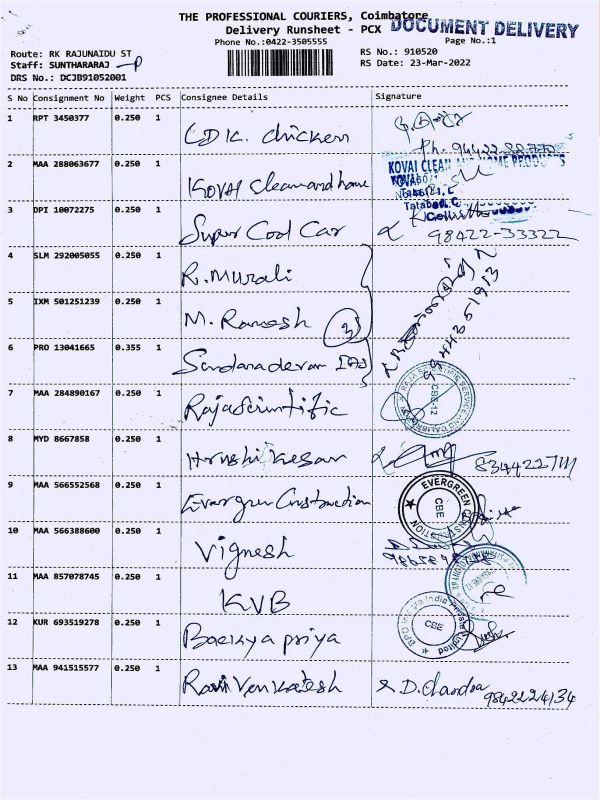 THE PROFESSIONAL COURIERS, Coimbatore
Delivery Runsheet - PCX DOCUMENT DELIVERY
Phone No.:0422-3505555 Page No.:1
Route: RK RAJUNAIDU ST RS No.: 910520
Staff: SUNTHARARAJ RS Date: 23-Mar-2022
DRS No.: DCJB91052001
S No Consignment No Weight PCS Consignee Details Signature
1 RPT 3450377 0.250 1 CDK. chicken
Ph.
2 MAA 288063677 0.250 1 KOVAI Clean and home
KOVAI CLEAN AND HOME PRODUCTS
Tatabad,
3 DPI 10072275 0.250 1 Super Cool Car 98422-33322
4 SLM 292005055 0.250 1 R. Murali
5 IXM 501251239 0.250 1 M. Ramesh 3
6 PRO 13041665 0.355 1
7 MAA 284890167 0.250 1 Raja Scientific
CBE-12
8 MYD 8667858 0.250 1 Hrushi Kesar
9 MAA 566552568 0.250 1 Evergreen Construction
EVERGREEN
CBE
10 MAA 566388600 0.250 1 Vignesh
11 MAA 857078745 0.250 1 KVB
12 KUR 693519278 0.250 1 priya
CBE
13 MAA 941515577 0.250 1 Ravi Venkatesh D. Chandra
9842224134